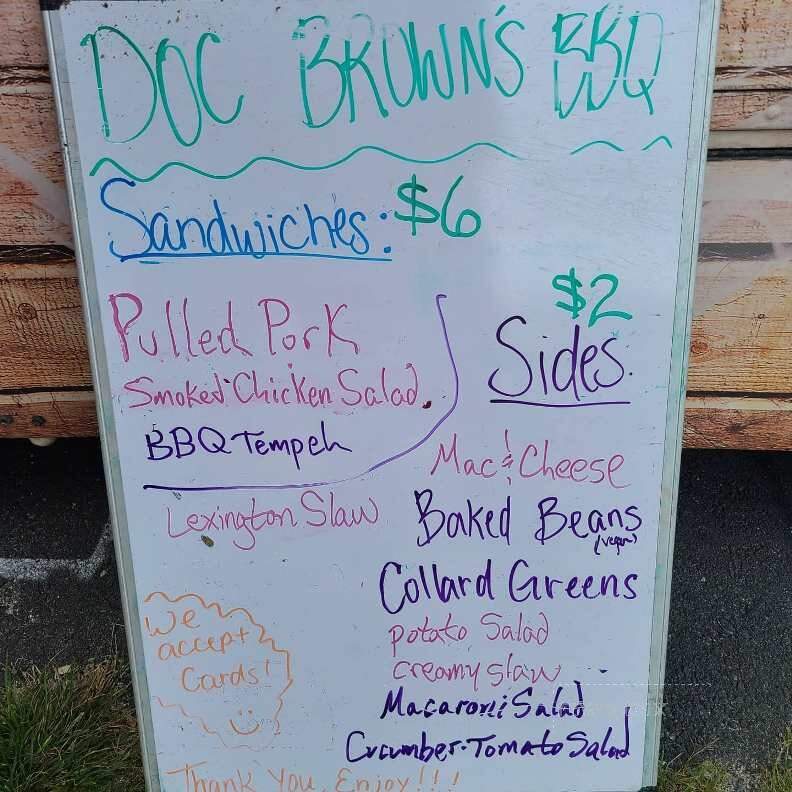 DOC BROWN'S BBQ
Sandwiches: $6
Pulled Pork
Smoked Chicken Salad
BBQ Tempeh
$2
Sides
Lexington Slaw
Mac & Cheese
Baked Beans
(vegan)
Collard Greens
potato Salad
creamy slaw
Macaroni Salad
Cucumber-Tomato Salad
We
accept
Cards!
Thank You, Enjoy!!!